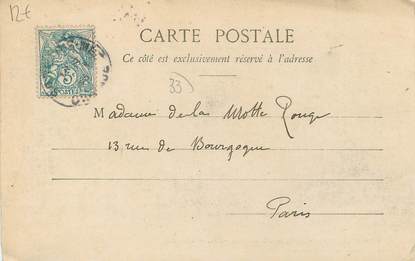 12€
CARTE POSTALE
Ce côté est exclusivement réservé à l'adresse
33
5
POSTES
Madame de la Motte Rouge
13 rue de Bourgogne
Paris